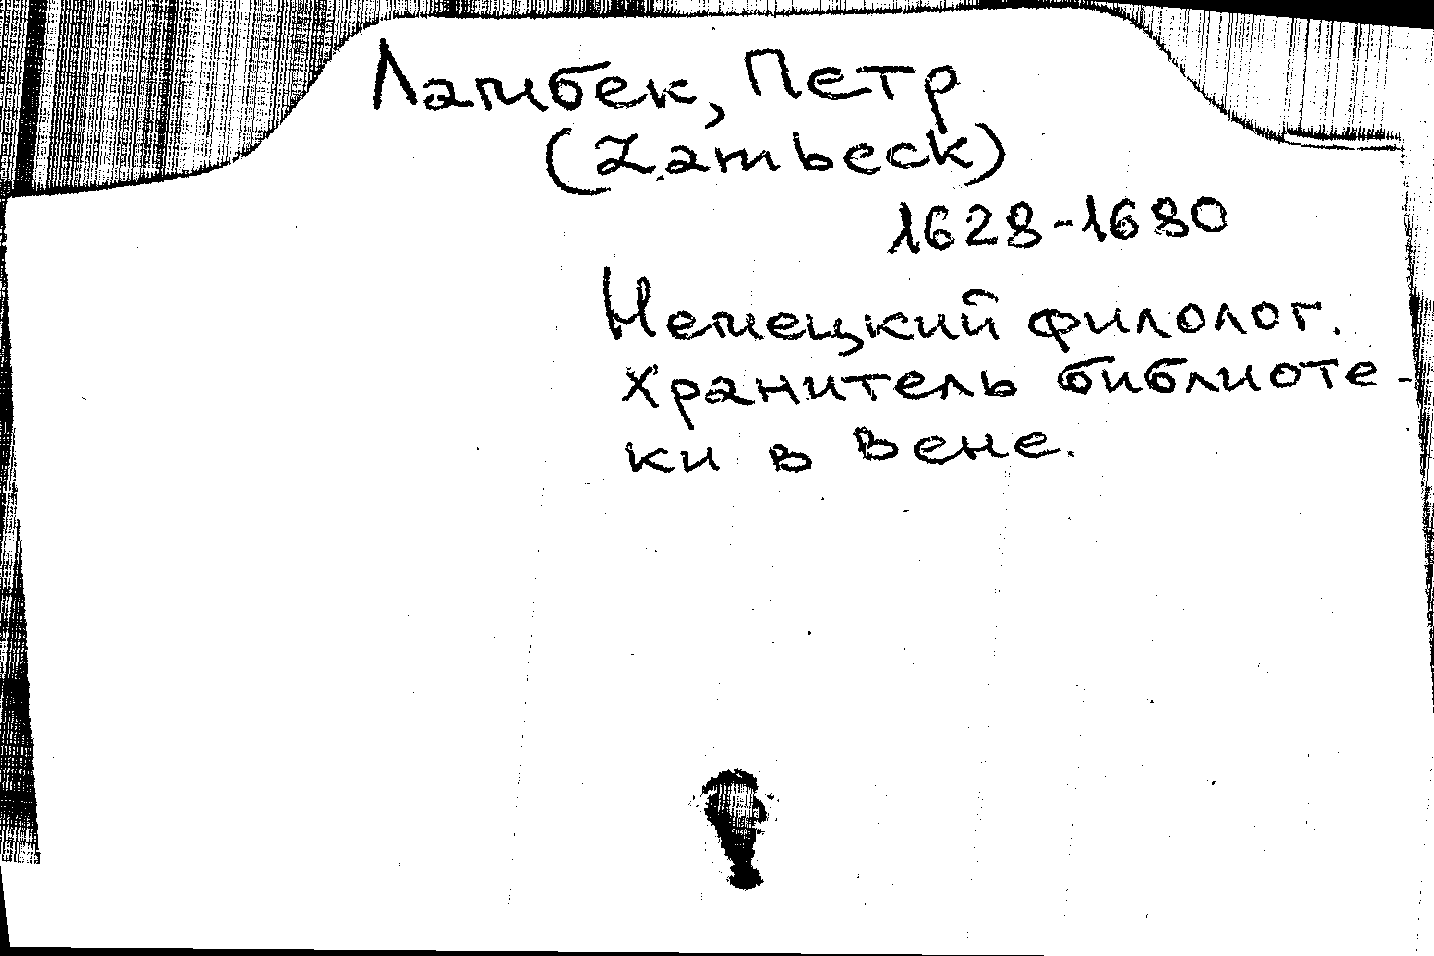 Ламбек, Петр
(Lambeck)
1628-1680
Немецкий филолог.
Хранитель библиоте-
ки в Вене.